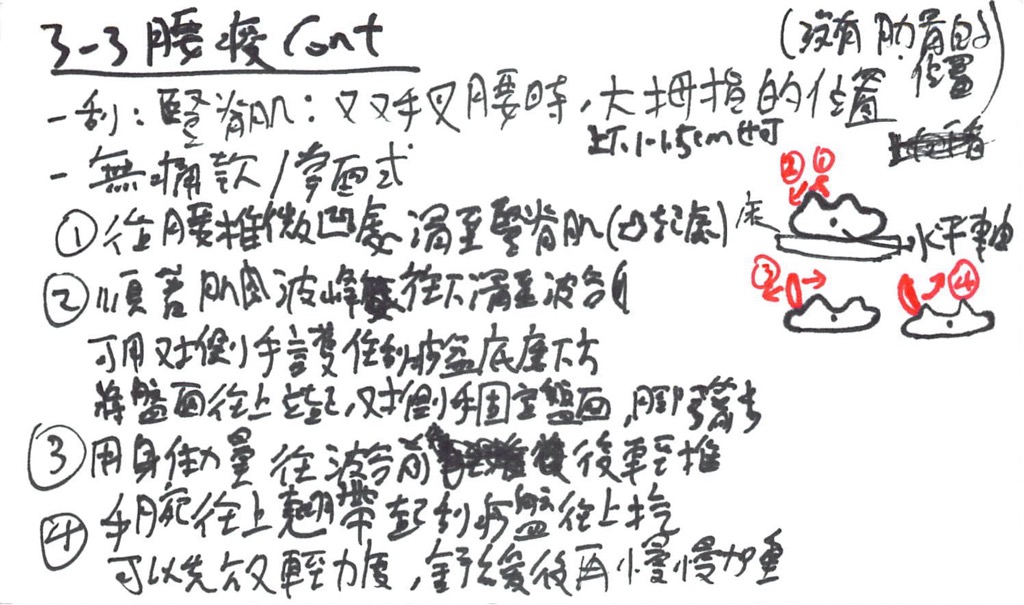 3-3 腰痠 Cont
(沒有肋骨的位置)
- 刮:豎脊肌:叉叉手叉腰時,大拇指的位置
上下1~1.5cm也可
- 無痛款/掌面式
① 從腰椎微凹處滑至豎脊肌(凸起處)
② 順著肌肉波峰往下滑至波谷
可用對側手護住刮痧盤底座下方
將盤面往上立起,對側手固定盤面,腳
③ 用身體力量往波谷前後輕推
④ 手腕往上翹帶起刮痧盤往上抬
可以先放輕力度,舒緩後再慢慢加重
床
水平軸
② ①
③
④